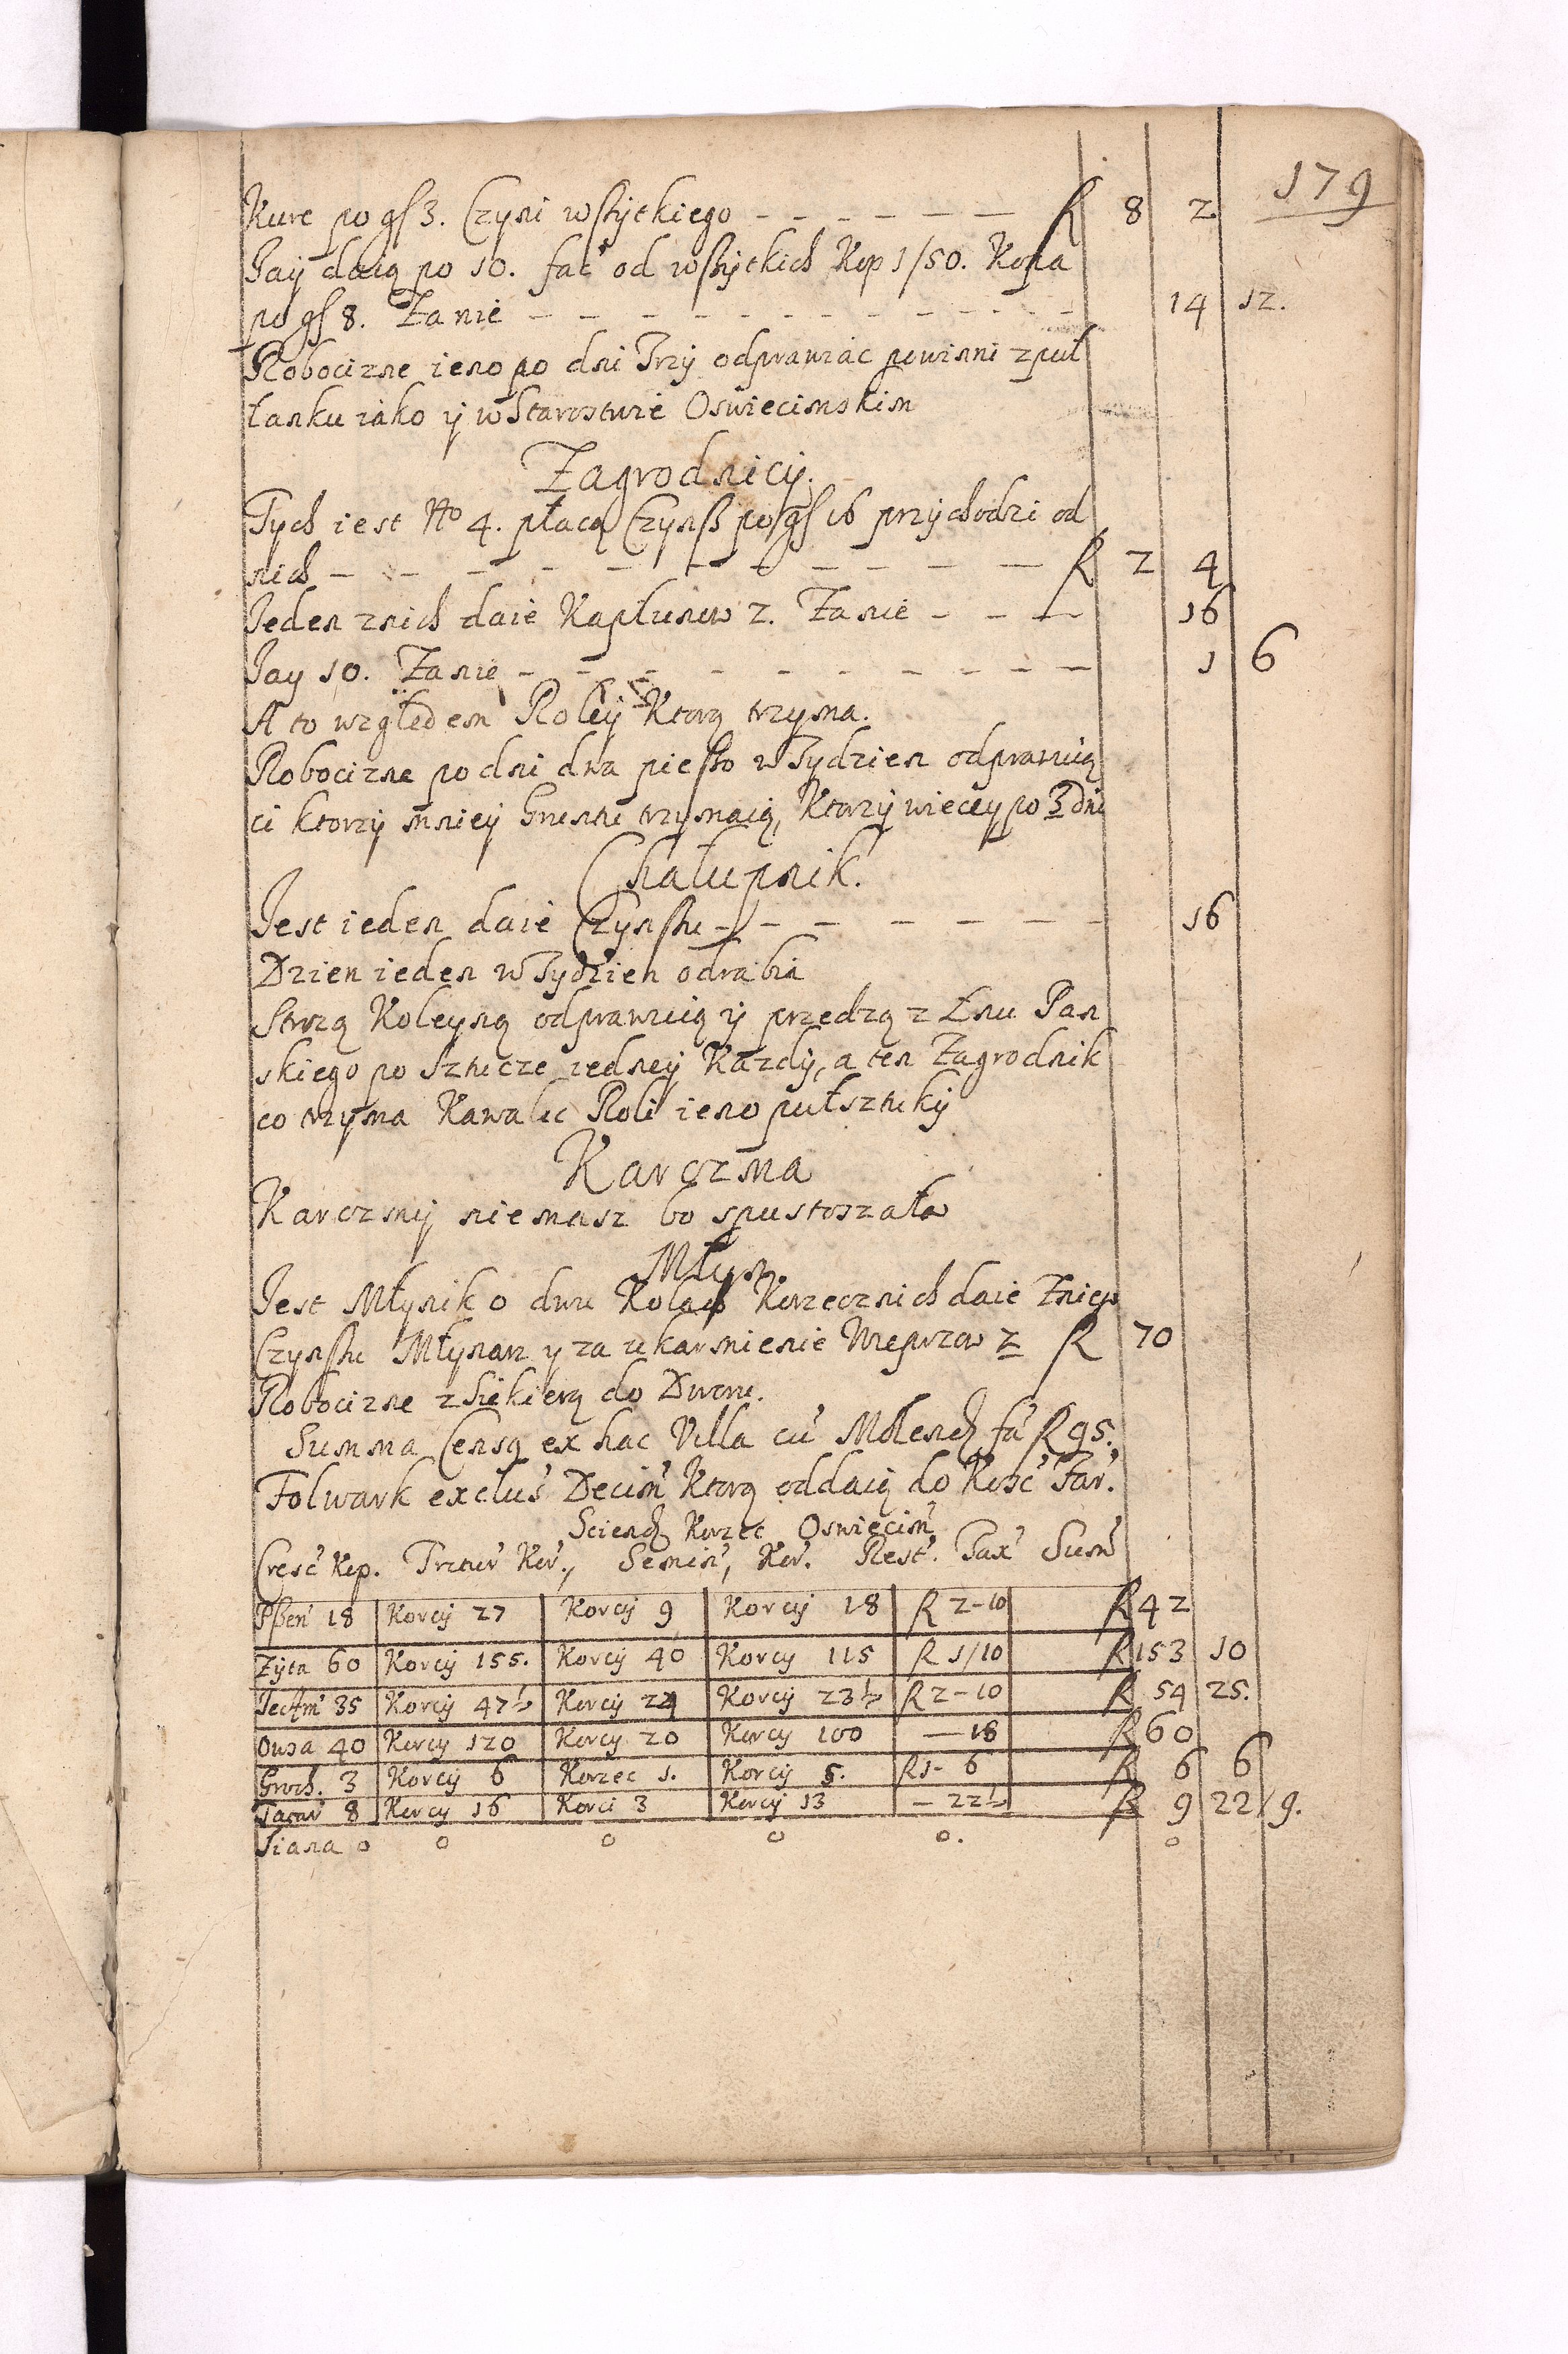 179
Kure po gſ 3. Czyni wſzytkiego — — — — — — — R 8 | 2
Jay daią po 10. fac̃ od wſzytkich Kop 1/50. Kopa
po gſ 8. Za nie — — — — — — — — — — 14 | 12.
Robocizne ieno po dni Trzy odprawiać powinni z puł
Łanku iako y w Starostwie Oswiecimskim
Zagrodnicy.
Tych iest No 4. płacą Czynsz po gſ 16 przychodzi od
nich — — — — — — — — — — R 2 | 4
Jeden z nich daie Kapłunow 2. Za nie — — — 16
Jay 10. Za nie — — — — — — — — — — 1 | 6
A to względem Roley Ktorą trzyma.
Robocizne po dni dwa pieszo w Tydzien odprawuią
ci ktorzy mniey Gruntu trzymaią, Ktorzy wiecey po 3 dni
Chałupnik.
Jest ieden daie Czynszu — — — — — — — 16
Dzien ieden w Tydzien odrabia
Strożą Koleyną odprawuią y przedzą z Lnu Pan
skiego po Sztucze iedney Kazdy, a ten Zagrodnik
co trzyma Kawalec Roli ieno puł sztuky
Karczma
Karczmy niemasz bo spustoszała
Młyn
Jest Młynik o dwu Kołach Korzecznich daie Zniego
Czynszu Młynarz y za ukarmienie Wieprzow 2 R 70
Robocizne z Siekierą do Dworu.
Summa Censq ex hac Villa cũ Molend fã R 95.
Folwark exclus̃ Decim̃ Ktorą oddaią do Kość Far̃.
Sciend Korzec Oswięcim̃
Cresc̃ Kop. Tritur̃ Kor̃., Semiñ, Kor̃. Rest̃. Tax̃ Sum̃
Pszeñ 18 | Korcy 27 | Korcy 9 | Korcy 18 | R 2-10 | R 42
Zyta 60 | Korcy 155. | Korcy 40 | Korcy 115 | R 1/10 | R 153 | 10
Jecżm̃ 35 | Korcy 47½ | Korcy 24 | Korcy 23½ | R 2-10 | R 54 | 25.
Owsa 40 | Korcy 120 | Korcy 20 | Korcy 100 | — 18 | R 60
Groch. 3 | Korcy 6 | Korzec 1. | Korcy 5. | R 1- 6 | R 6 | 6
Tatar̃ 8 | Korcy 16 | Korci 3 | Korcy 13 | — 22½ | R 9 | 22 / 9.
Siana 0 0 0 0 0. 0